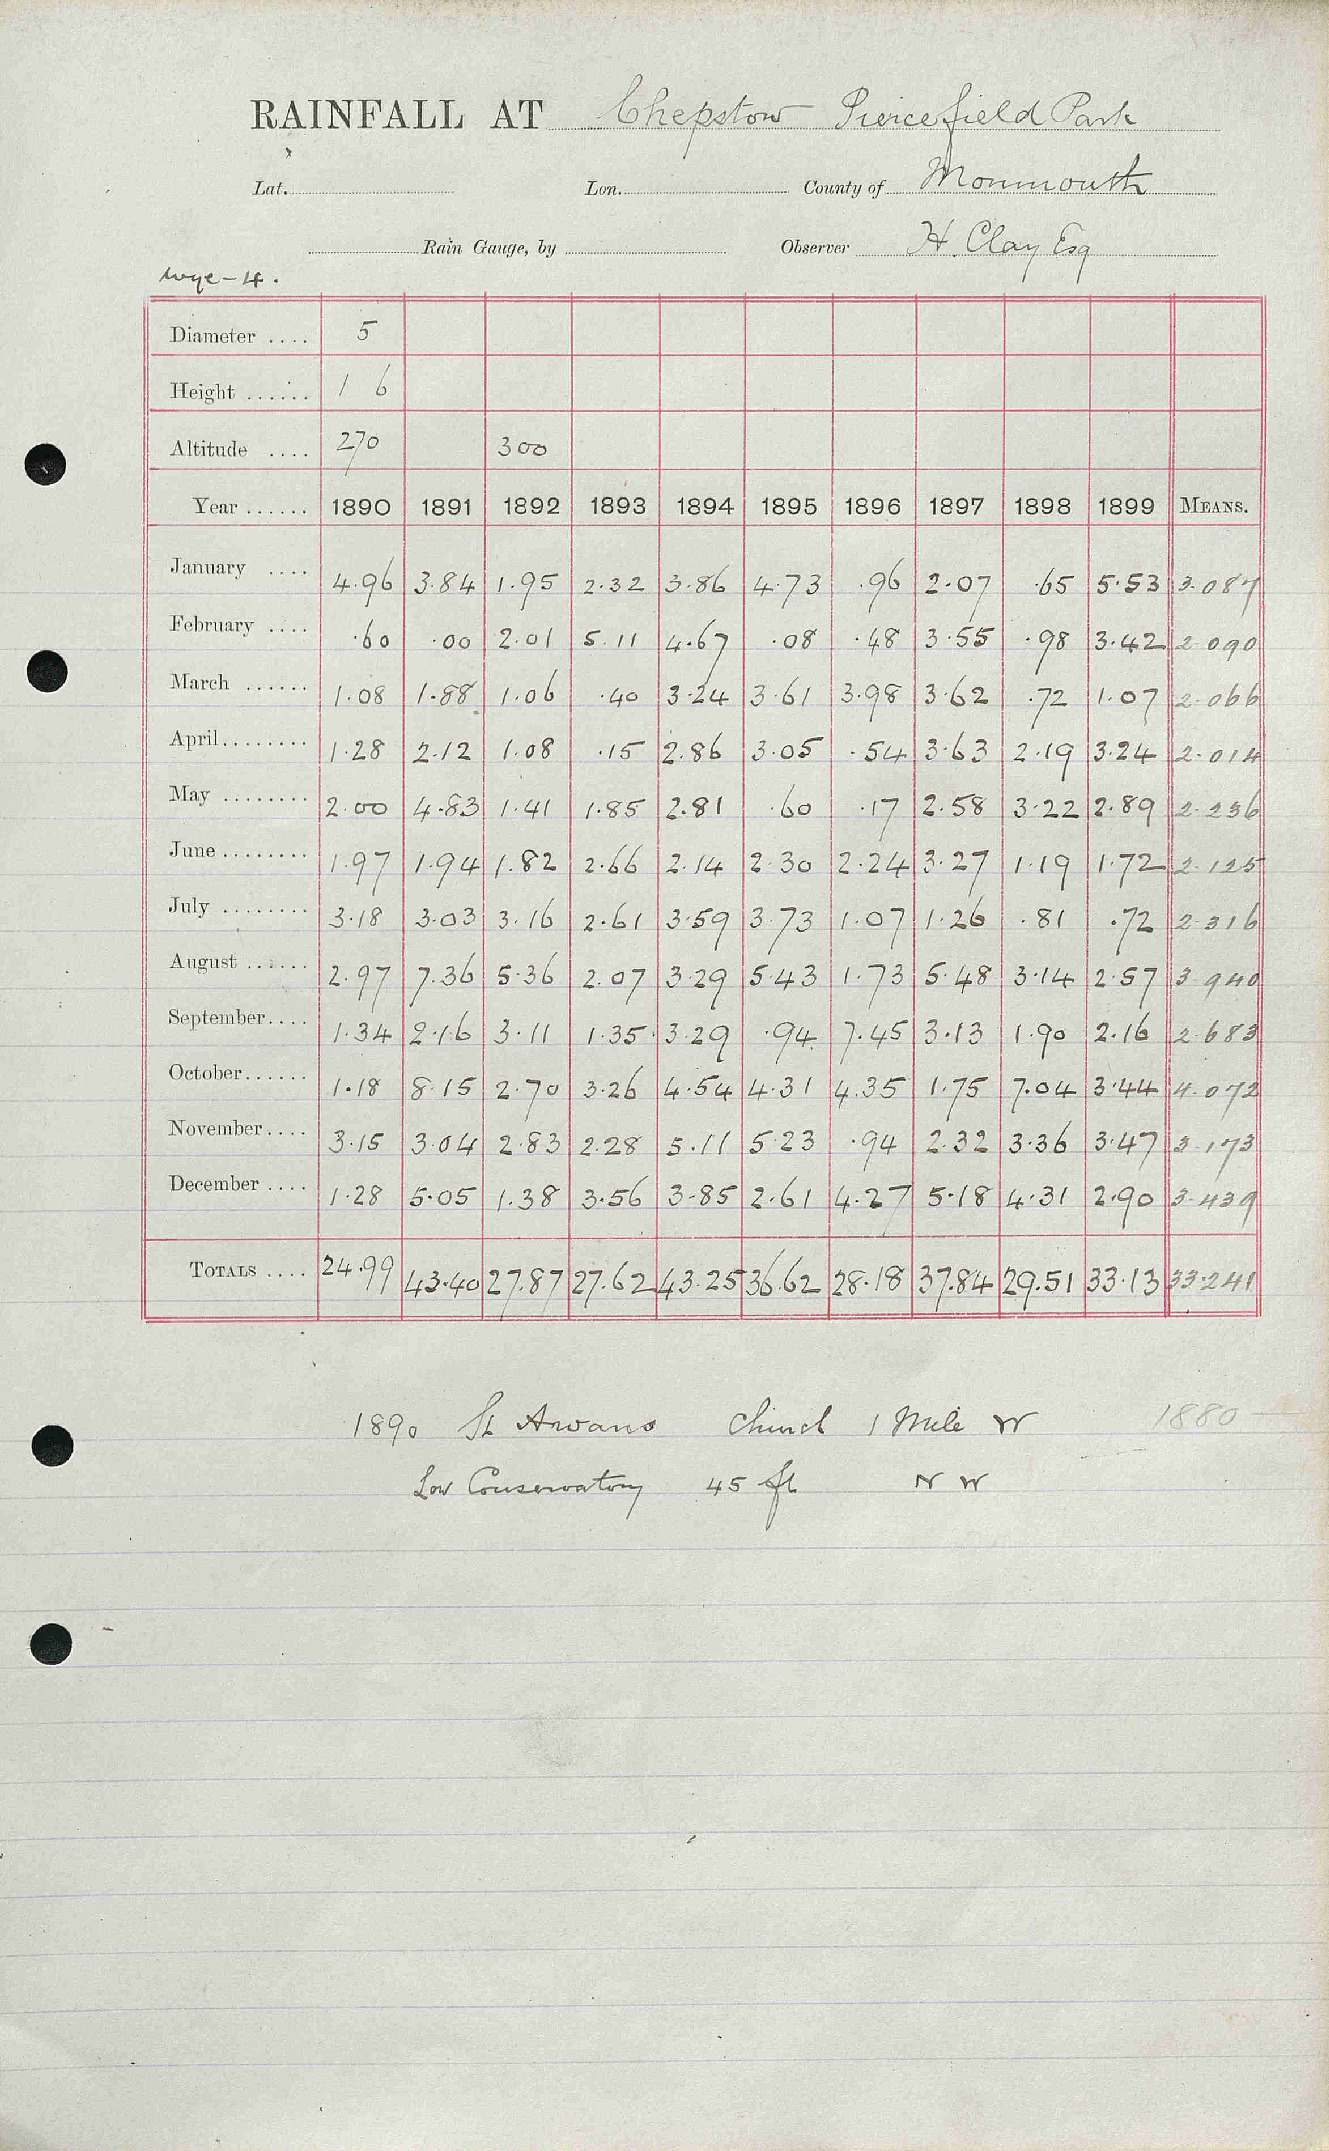 RAINFALL AT Chepstow Piercefield Park
Lat. Lon. County of Monmouth
Rain Gauge, by Observer H. Clay Esq
Wye-4.
Diameter .... 5
Height ...... 1 6
Altitude .... 270 300
Year ...... 1890 1891 1892 1893 1894 1895 1896 1897 1898 1899 MEANS.
January .... 4.96 3.84 1.95 2.32 3.86 4.73 .96 2.07 .65 5.53 3.087
February .... .60 .00 2.01 5.11 4.67 .08 .48 3.55 .98 3.42 2.090
March ...... 1.08 1.88 1.06 .40 3.24 3.61 3.98 3.62 .72 1.07 2.066
April........ 1.28 2.12 1.08 .15 2.86 3.05 .54 3.63 2.19 3.24 2.014
May ........ 2.00 4.83 1.41 1.85 2.81 .60 .17 2.58 3.22 2.89 2.236
June ........ 1.97 1.94 1.82 2.66 2.14 2.30 2.24 3.27 1.19 1.72 2.125
July ........ 3.18 3.03 3.16 2.61 3.59 3.73 1.07 1.26 .81 .72 2.316
August ...... 2.97 7.36 5.36 2.07 3.29 5.43 1.73 5.48 3.14 2.57 3.940
September.... 1.34 2.16 3.11 1.35 3.29 .94 7.45 3.13 1.90 2.16 2.683
October...... 1.18 8.15 2.70 3.26 4.54 4.31 4.35 1.75 7.04 3.44 4.072
November.... 3.15 3.04 2.83 2.28 5.11 5.23 .94 2.32 3.36 3.47 3.173
December .... 1.28 5.05 1.38 3.56 3.85 2.61 4.27 5.18 4.31 2.90 3.439
TOTALS .... 24.99 43.40 27.87 27.62 43.25 36.62 28.18 37.84 29.51 33.13 33.241
1890 St Arvans Church 1 Mile W 1880
Low Conservatory 45 ft N W